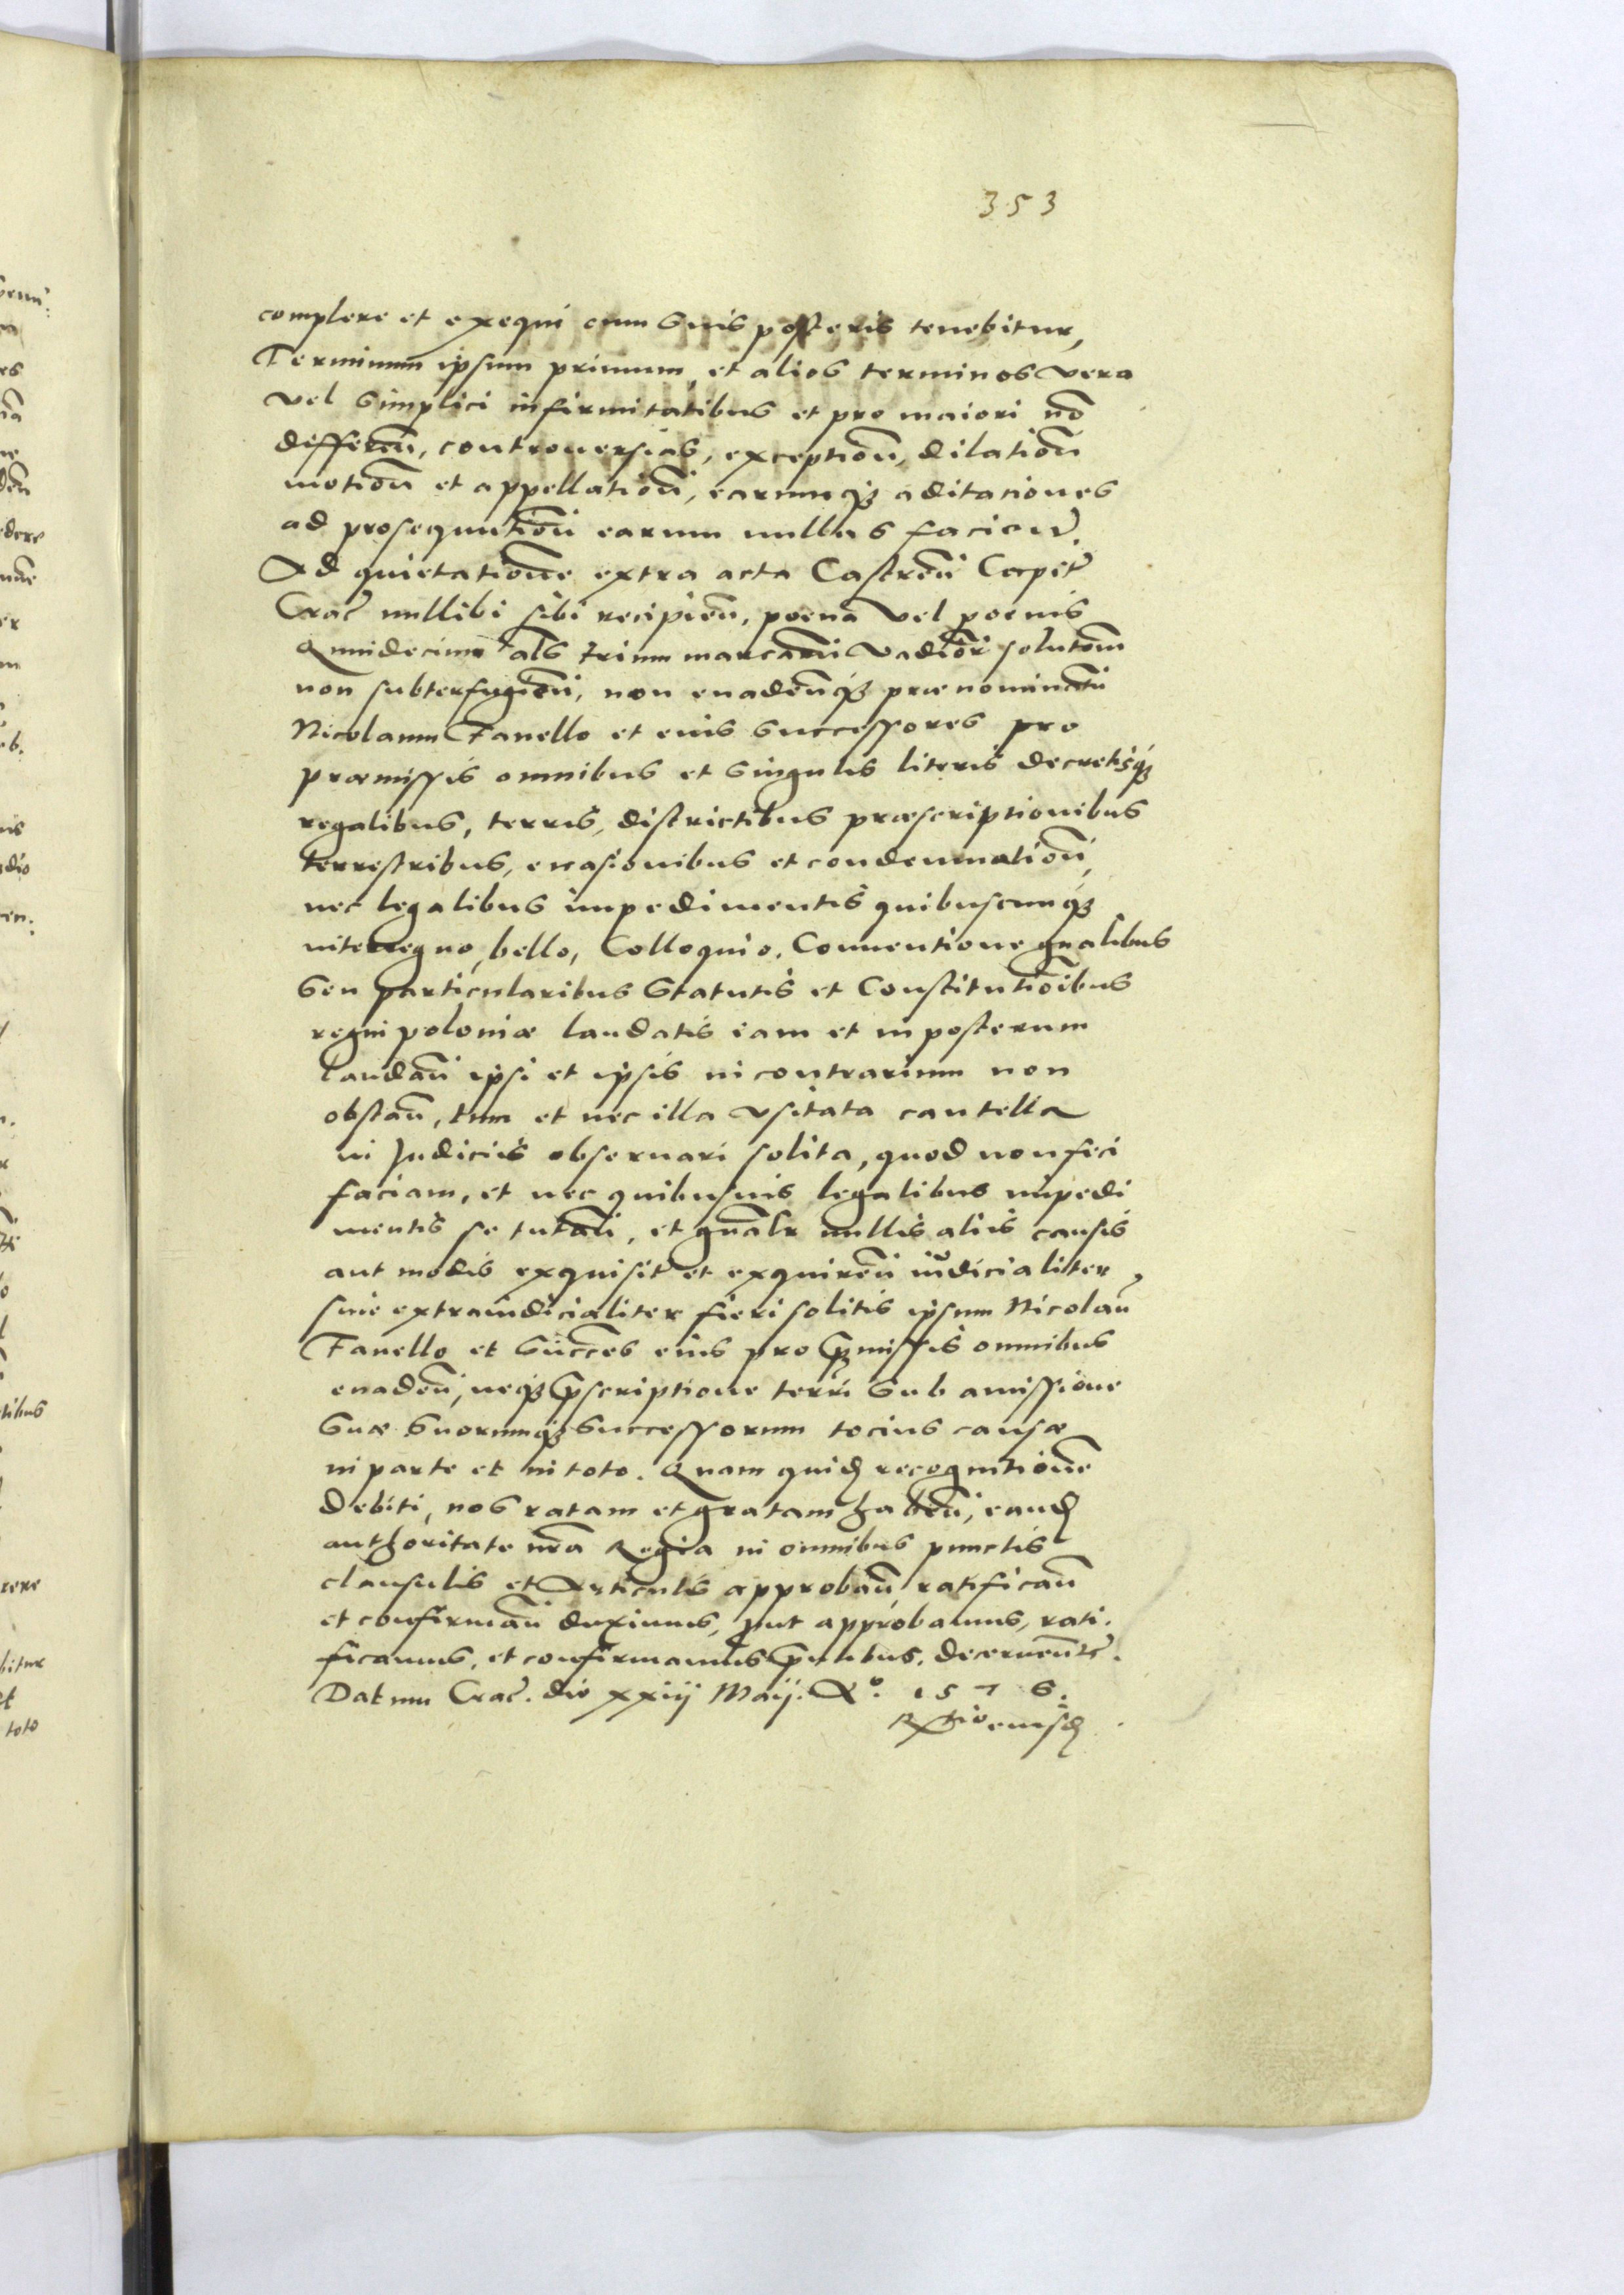 353
complere et exequi cum suis posteris tenebitur,
Terminum ipsum primum, et alios terminos vera
vel simplici infirmitatibus et pro maiori nō
differeñ, controversias, exceptioñ, dilatioñ
motioñ et appellationi, earumq₃ aditationes
ad prosequutioñ earum nullas facien̄.
Ad quietatione extra acta Castreñ Capit̄
Crac̄ nullibi sibi recipieñ, poena vel poenis
Quindecim als trium marcarū vadior̄ solutōm
non subterfugieñ, non evadeñq₃ prænominatū
Nicolaum Fanello et eius successores pro
præmissis omnibus et singulis literis decretisq₃
regalibus, terris, districtibus præscriptionibus
terrestribus, evasionibus et condemnationi,
nec legalibus impedimentis quibuscunq₃
interregno, bello, Colloquio, Conventione gnalibus
seu particularibus Statutis et Constitutiōibus
regni poloniæ laudatis iam et in posterum
laudañ ipsi et ipsis in contrarium non
obstañ, tum et nec illa usitata cautella
in Judiciis observari solita, quod non feci
faciam, et nec quibusvis legalibus impedi
mentis se tutañ, et gnalr nullis aliis causis
aut modis exquisit̄ et exquireñ iudicialiter
sive extraiudicialiter fieri solitis ipsum Nicolaū
Fanello et Succēs eius pro p̄missis omnibus
evadeñ, neq₃ p̄scriptione terrī sub amissione
suæ suorumq₃ successorum tocius causæ
in parte et in toto. Quam quid̄ recognitione
debiti, nos ratam et gratam habeñ, eand̄
authoritate nr̄a Regia in omnibus punctis
clausulis et Articulis approbañ, ratificañ
et confirmañ duximus, put approbamus, rati-
ficamus, et confirmamus p̄ntibus. decerneñt̄.
Datum Crac̄. die xxiij Maij. Aº. 1576.
Rtio eiusd̄